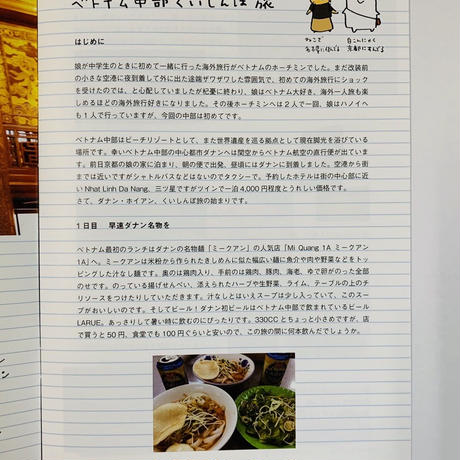 ベトナム中部くいしんぼ旅
はじめに
娘が中学生のときに初めて一緒に行った海外旅行がベトナムのホーチミンでした。まだ改装前
の小さな空港に夜到着して外に出た途端ザワザワした雰囲気で、初めての海外旅行にショック
を受けたのでは、と心配していましたが杞憂に終わり、娘はベトナム大好き、海外一人旅も楽
しめるほどの海外旅行好きになりました。その後ホーチミンへは2人で一回、娘はハノイへ
も1人で行っていますが、今回の中部は初めてです。
ベトナム中部はビーチリゾートとして、また世界遺産を巡る拠点として現在脚光を浴びている
場所です。幸いベトナム中部の中心都市ダナンへは関空からベトナム航空の直行便が出ていま
す。前日京都の娘の家に泊まり、朝の便で出発、昼頃にはダナンに到着しました。空港から街
までは近いですがシャトルバスなどはないのでタクシーで。予約したホテルは街の中心部に近
い Nhat Linh Da Nang、三ツ星ですがツインで一泊 4,000 円程度とうれしい価格です。
さて、ダナン・ホイアン、くいしんぼ旅の始まりです。
1日目 早速ダナン名物を
ベトナム最初のランチはダナンの名物麺「ミークアン」の人気店「Mi Quang 1A ミークアン
1A」へ。ミークアンは米粉から作られたきしめんに似た幅広い麺に魚介や肉や野菜などをトッ
ピングした汁なし麺です。奥のは鶏肉入り、手前のは鶏肉、豚肉、海老、ゆで卵がのった全部
のせです。のっている揚げせんべい、添えられたハーブや生野菜、ライム、テーブルの上のチ
リソースをつけたりしていただきます。汁なしとはいえスープは少し入っていて、このスー
プがおいしいのです。そしてビール！ダナン初ビールはベトナム中部で飲まれているビール
LARUE。あっさりして暑い時に飲むのにぴったりです。330CC とちょっと小さめですが、店
で買うと 50 円、食堂でも 100 円ぐらいと安いので、この旅の間に何本飲んだでしょうか。